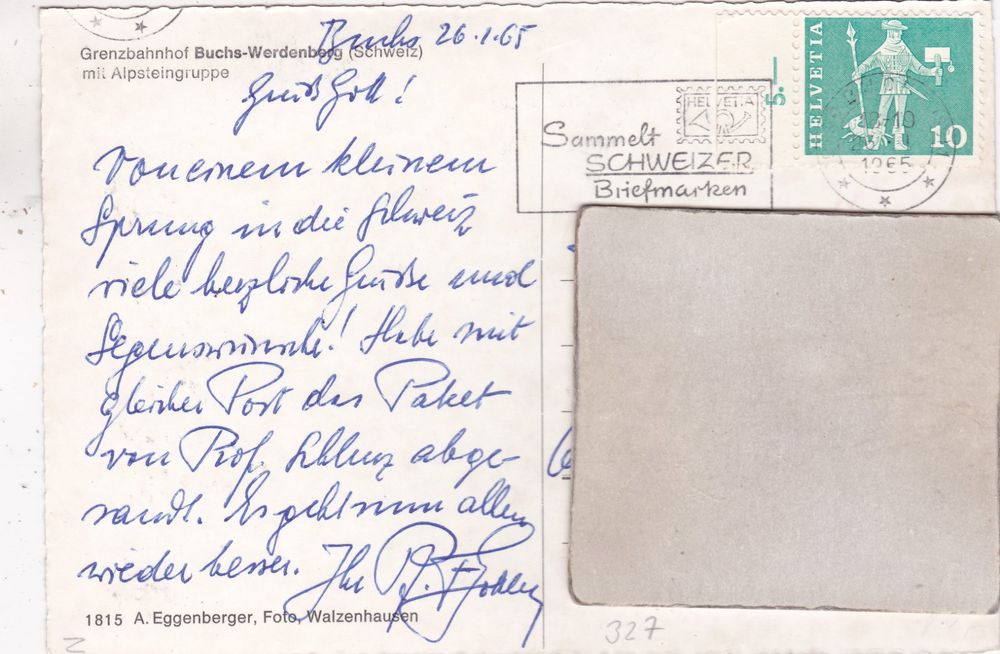 Grenzbahnhof Buchs-Werdenberg (Schweiz)
mit Alpsteingruppe
Buchs 26.1.65
Grüß Gott!
Von einem kleinem
Sprung in die Schweiz
viele herzliche Grüße und
Segenswünsche! Habe mit
gleicher Post das Paket
von Prof. abge-
sandt. Es geht nun allen
wieder besser. Ihr
1815 A. Eggenberger, Foto, Walzenhausen
HELVETIA
Sammelt
SCHWEIZER
Briefmarken
5.—
HELVETIA
10
1965
327